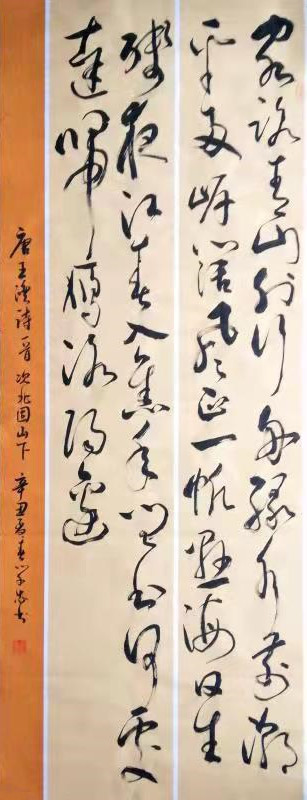 客路青山外行舟绿水前潮
平两岸阔风正一帆悬海日生
残夜江春入舊年鄉书何处
達歸雁洛陽邊
唐王湾诗一首 次北固山下 辛丑 书